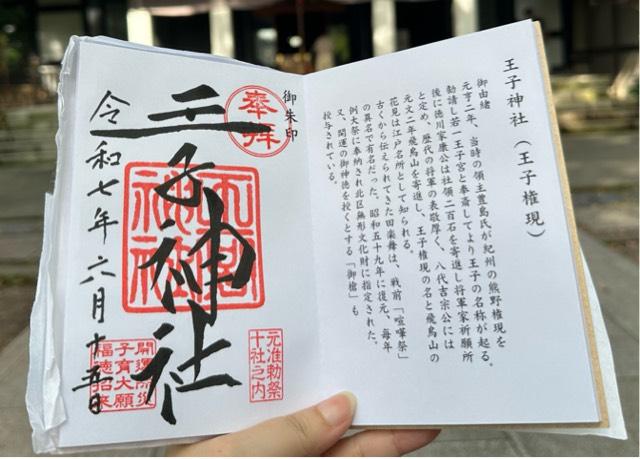 王子神社（王子権現）
御由緒
元亨二年、当時の領主豊島氏が紀州の熊野権現を
勧請し若一王子宮と奉斎してより王子の名称が起る。
後に徳川家康公は社領二百石を寄進し将軍家祈願所
と定め、歴代の将軍の表敬厚く、八代吉宗公には
元文二年飛鳥山を寄進し、王子権現の名と飛鳥山の
花見は江戸名所として知られる。
古くから伝えられてきた田楽舞は、戦前「喧嘩祭」
の異名で有名だった。昭和五十九年に復元、毎年
例大祭に奉納され北区無形文化財に指定された。
又、開運の御神徳を授くとする「御槍」も
授与されている。
御朱印
奉拝
元准勅祭
十社之内
王子神社
令和七年六月十五日
開運除災
子育大願
福徳招来